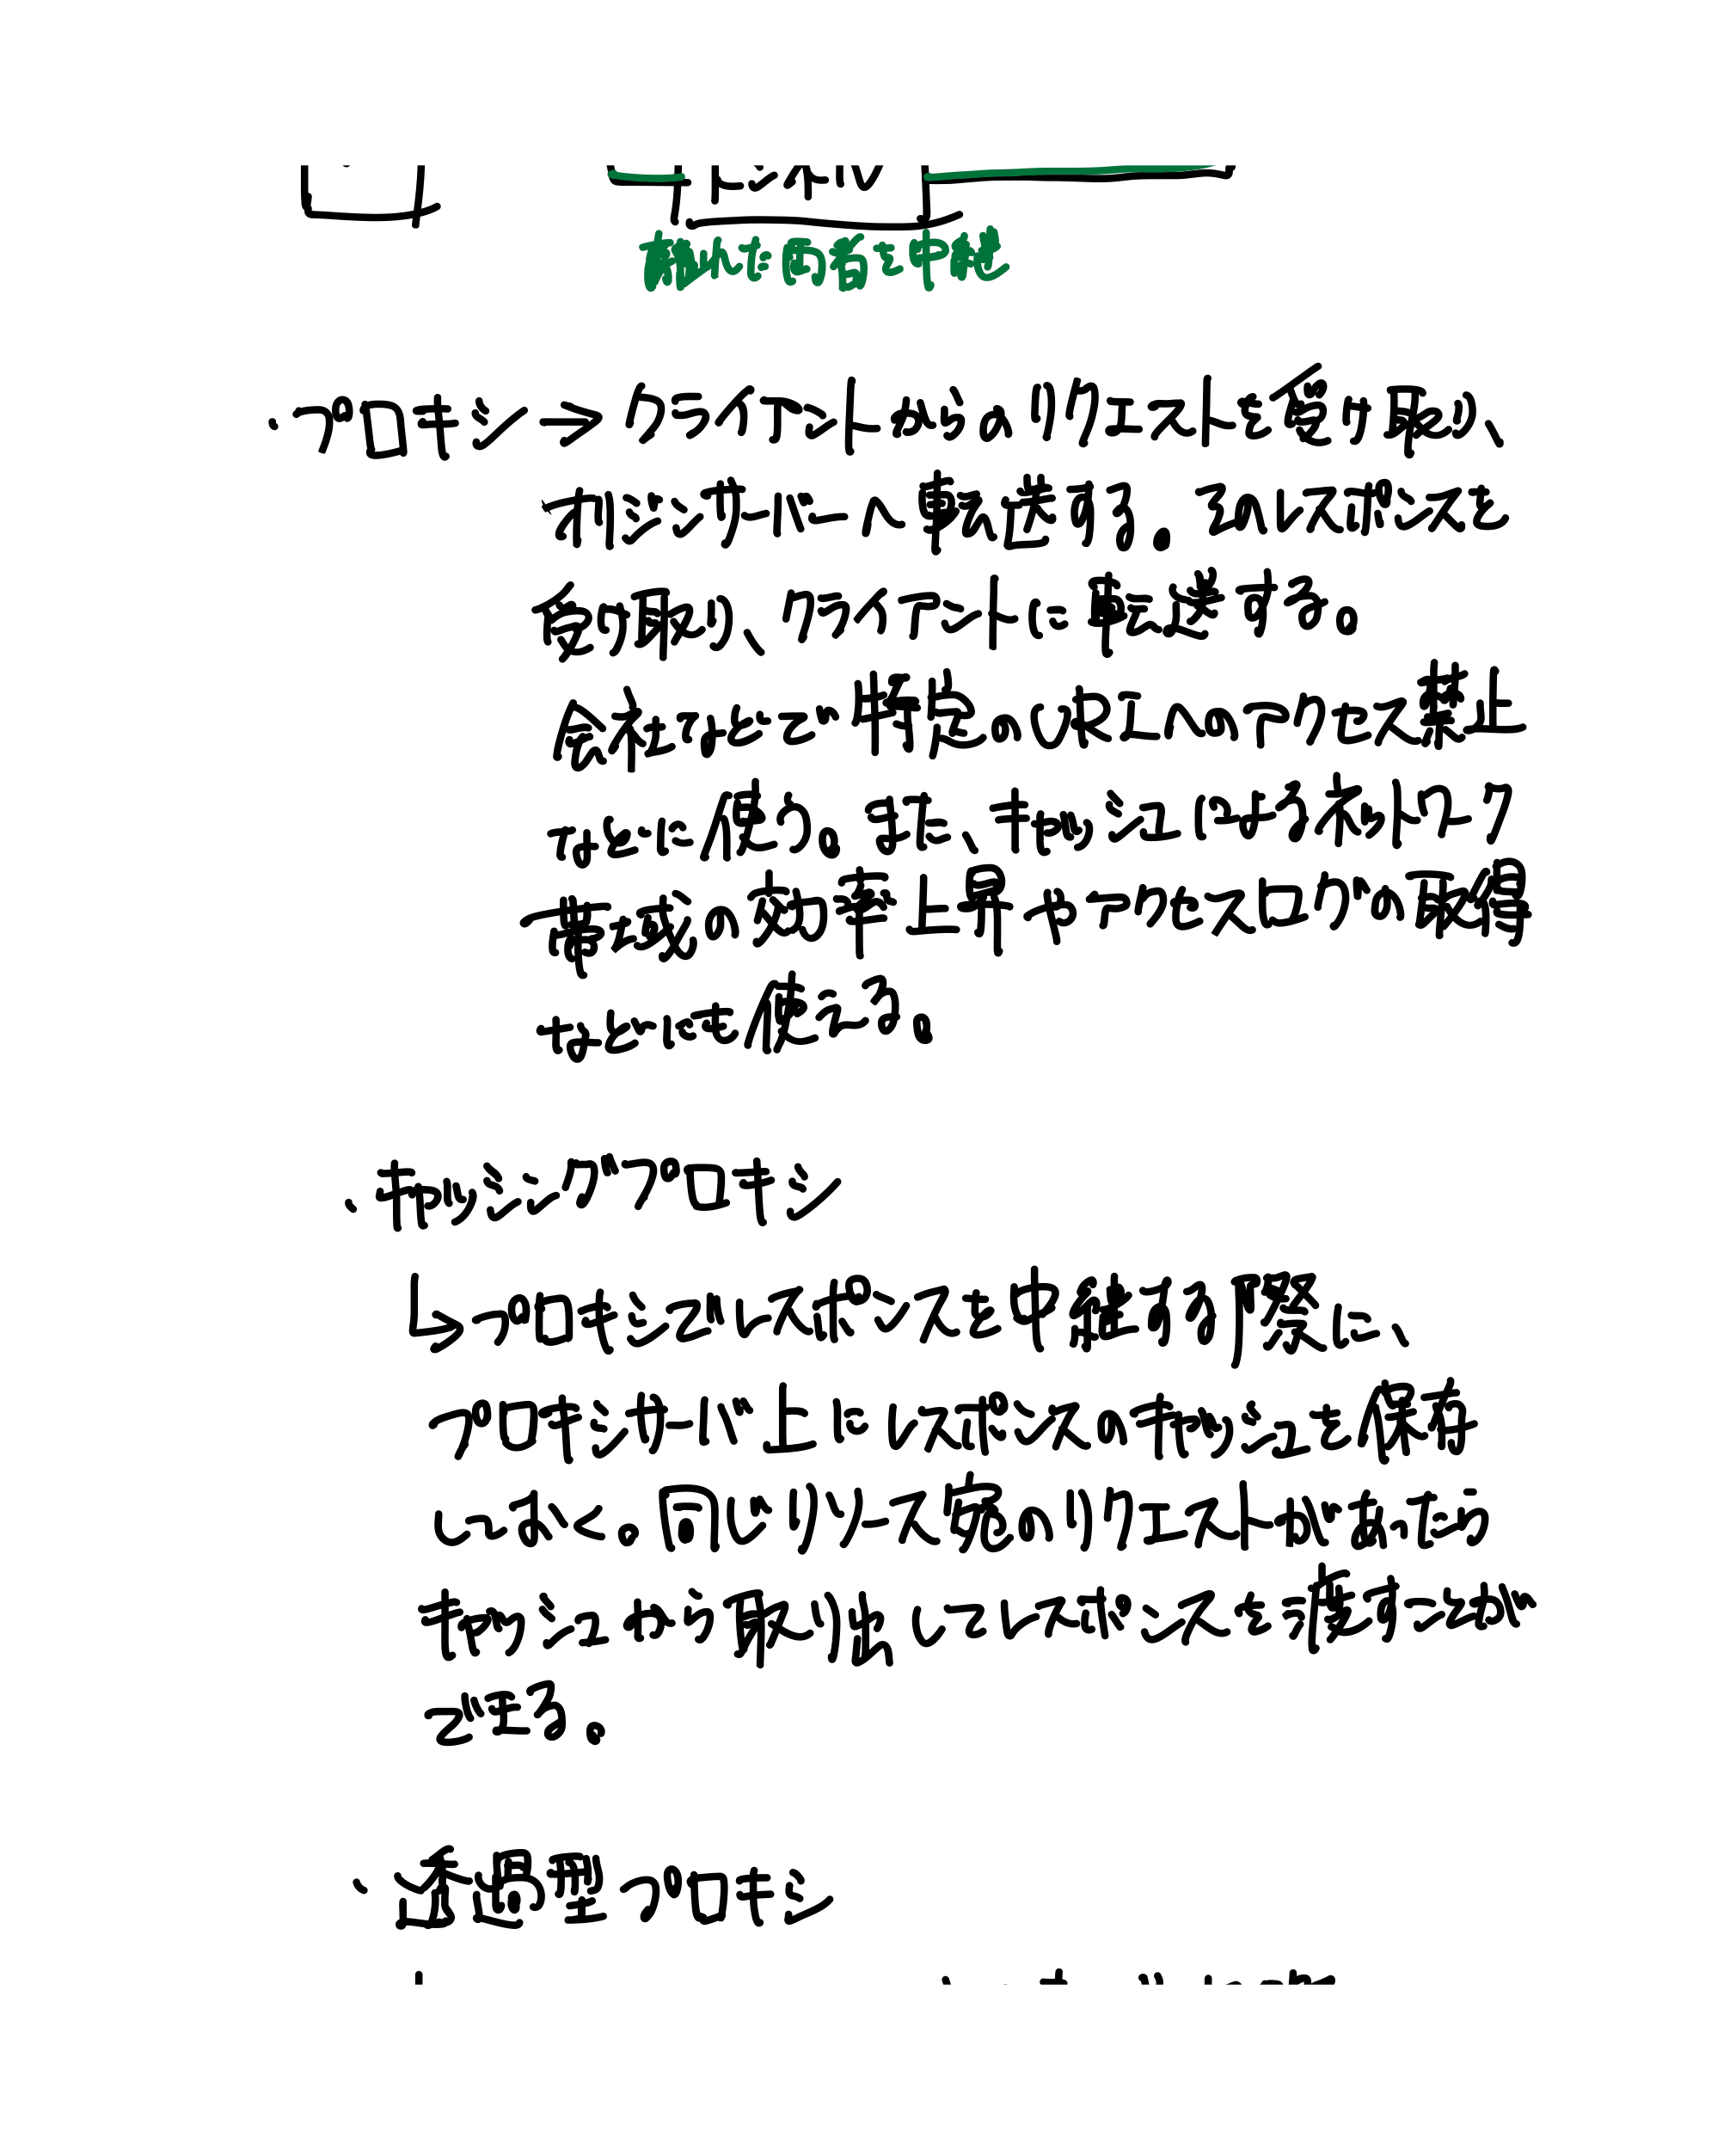 トンネル
離れた両者を中継
・プロキシ→クライアントからのリクエストを受け取り、
オリジンサーバーへ転送する。そのレスポンスを
受け取り、クライアントに転送する。
会社などで特定のURLへのアクセス禁止
などに使う。また、キャッシュによるネットワーク
帯域の効率上昇やアクセスログの取得
などにも使える。
・キャッシングプロキシ
↳プロキシでレスポンスを中継する際に、
プロキシサーバ上にレスポンスのキャッシュを保存
しておく。同じリソース宛のリクエストがあったら
キャッシュから取り出してレスポンスを渡すことが
できる。
・透過型プロキシ